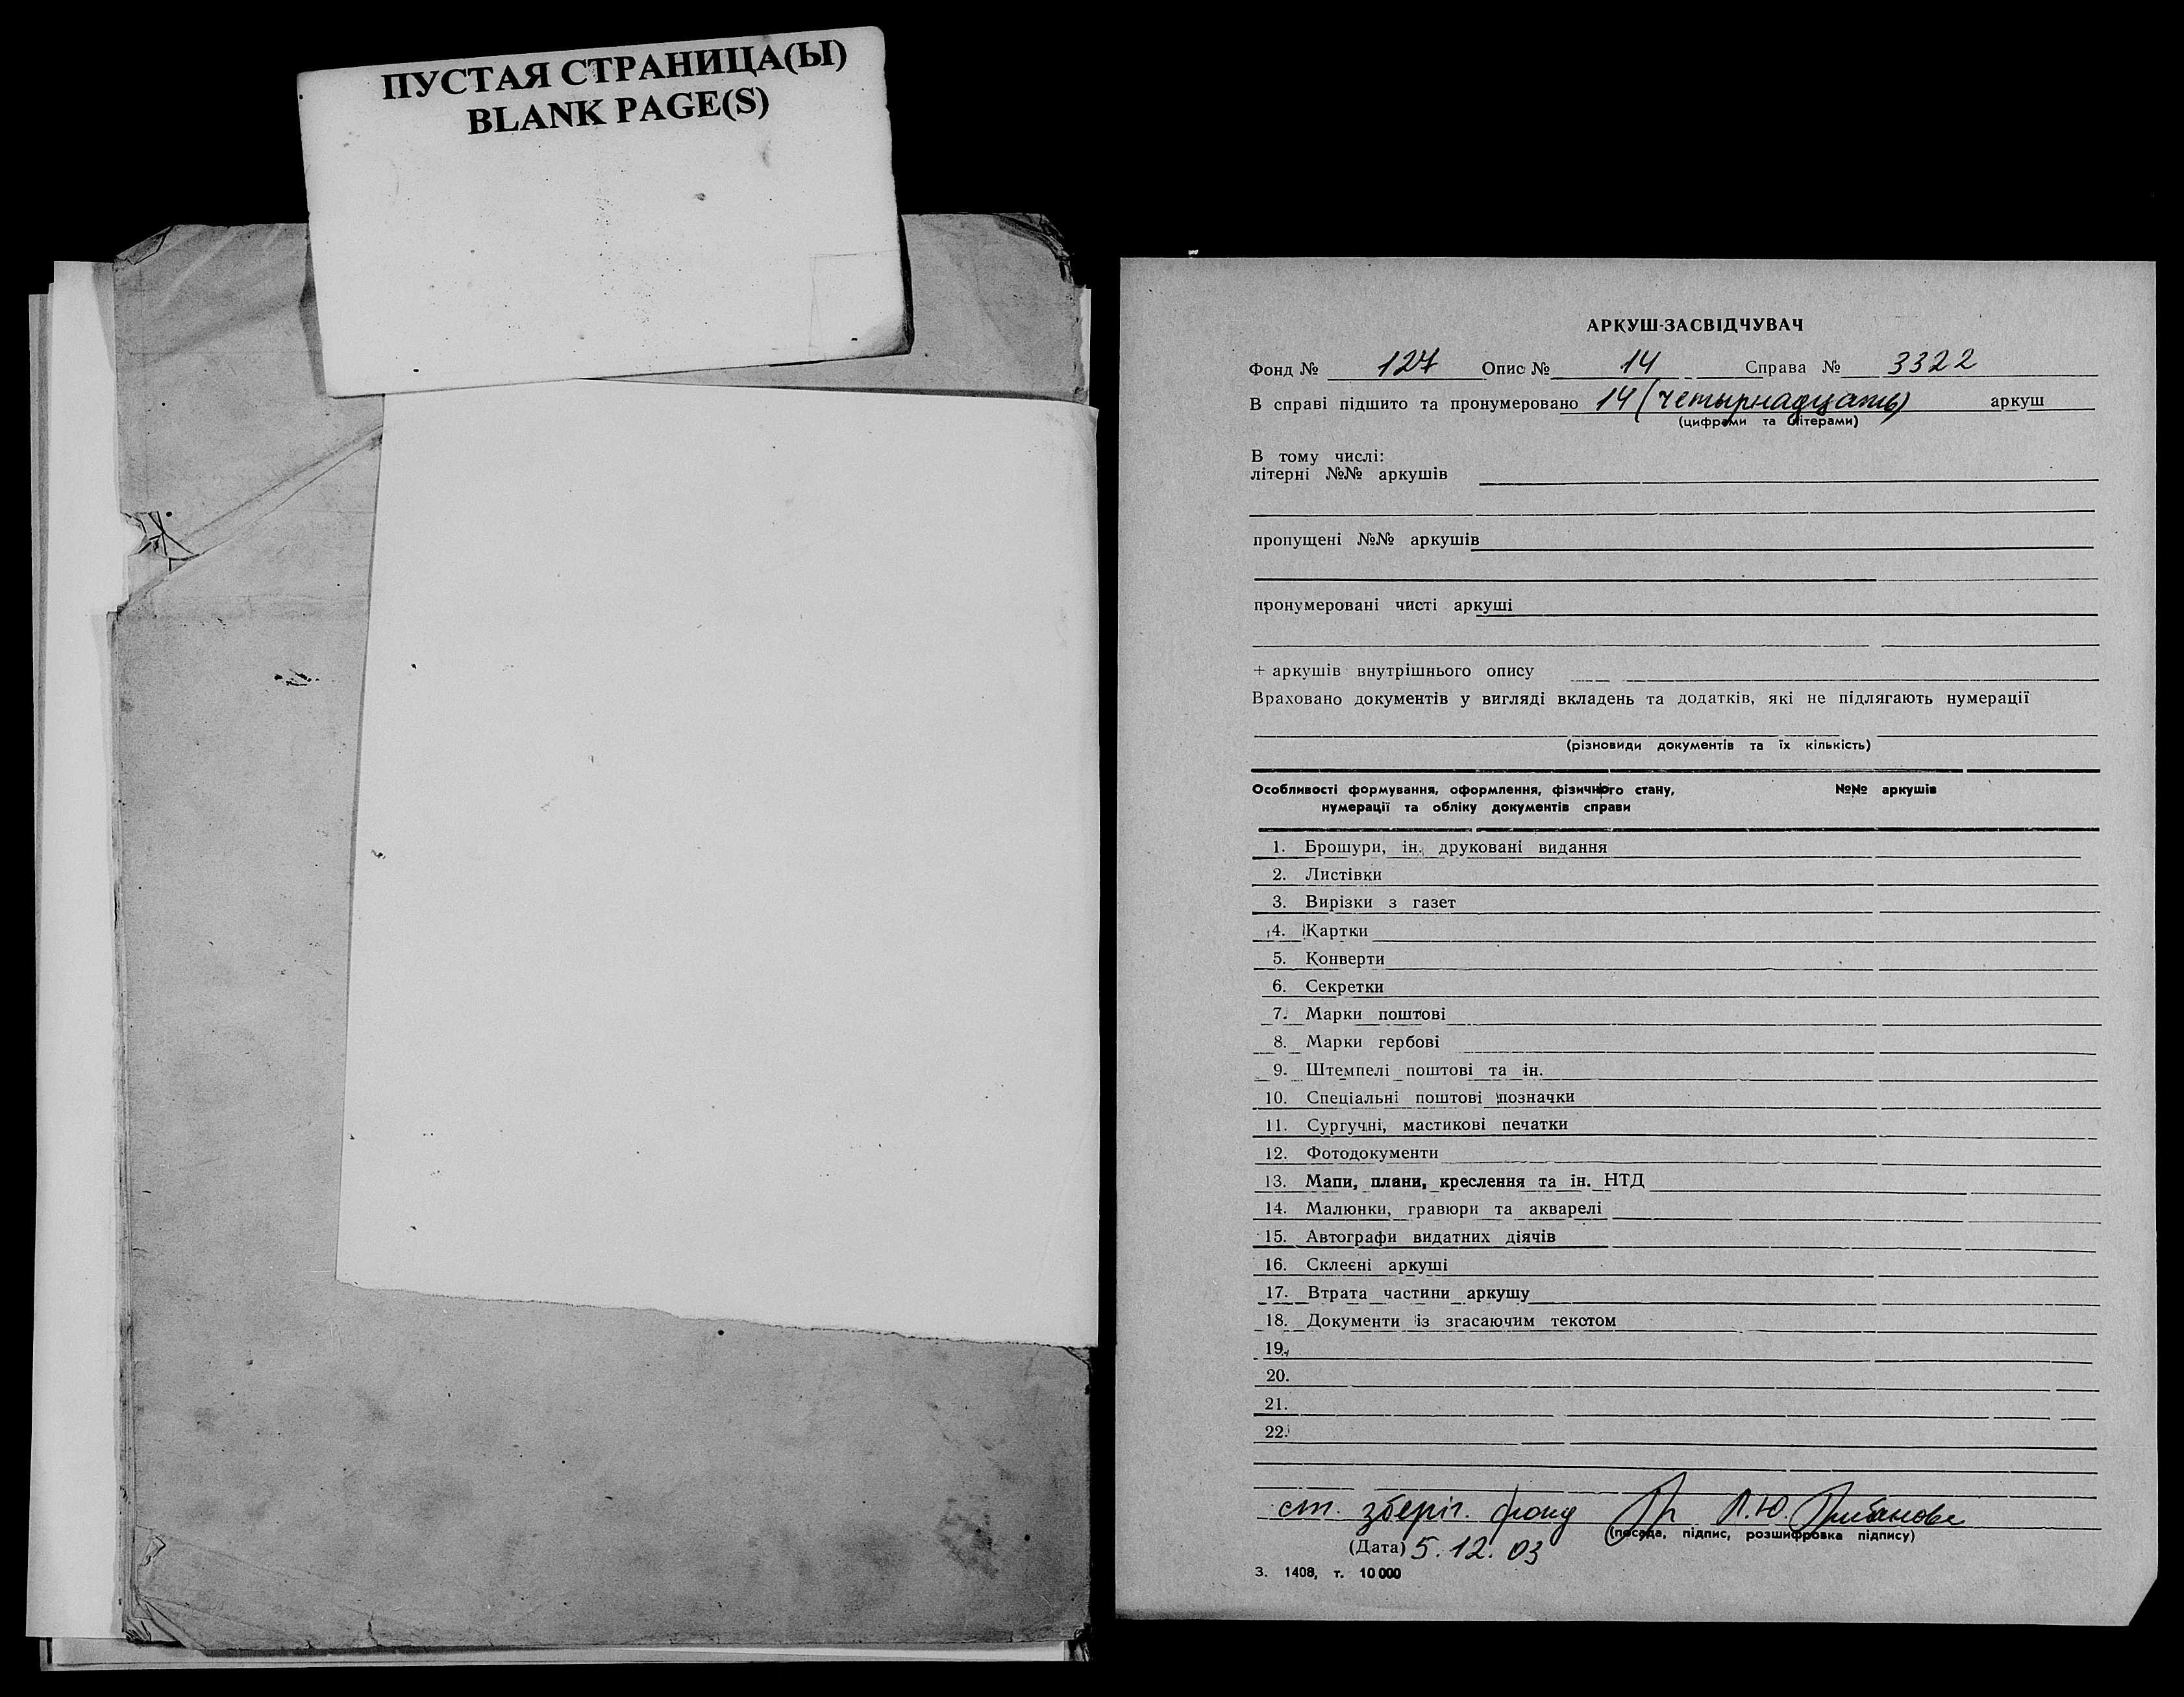 ПУСТАЯ СТРАНИЦА(Ы)
BLANK PAGE(S)
АРКУШ-ЗАСВІДЧУВАЧ
Фонд № 127 Опис № 14 Справа № 3322
В справі підшито та пронумеровано 14 (четырнадцать) аркуш
(цифрами та літерами)
В тому числі:
літерні №№ аркушів
пропущені №№ аркушів
пронумеровані чисті аркуші
+ аркушів внутрішнього опису
Враховано документів у вигляді вкладень та додатків, які не підлягають нумерації
(різновиди документів та їх кількість)
Особливості формування, оформлення, фізичного стану, №№ аркушів
нумерації та обліку документів справи
1. Брошури, ін. друковані видання
2. Листівки
3. Вирізки з газет
4. Картки
5. Конверти
6. Секретки
7. Марки поштові
8. Марки гербові
9. Штемпелі поштові та ін.
10. Спеціальні поштові позначки
11. Сургучні, мастикові печатки
12. Фотодокументи
13. Мапи, плани, креслення та ін. НТД
14. Малюнки, гравюри та акварелі
15. Автографи видатних діячів
16. Склеєні аркуші
17. Втрата частини аркушу
18. Документи із згасаючим текстом
19.
20.
21.
22.
ст. зберіг. фонд Л.Ю.
(посада, підпис, розшифровка підпису)
(Дата) 5.12.03
З. 1408, т. 10 000